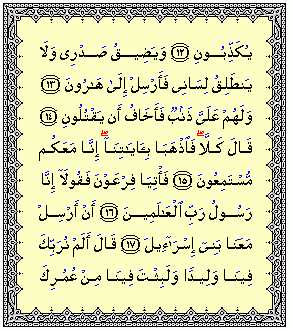 يُكَذِّبُونِ ﴿١٢﴾ وَيَضِيقُ صَدْرِى وَلَا
يَنطَلِقُ لِسَانِى فَأَرْسِلْ إِلَىٰ هَٰرُونَ ﴿١٣﴾
وَلَهُمْ عَلَىَّ ذَنۢبٌ فَأَخَافُ أَن يَقْتُلُونِ ﴿١٤﴾
قَالَ كَلَّاۖ فَٱذْهَبَا بِـَٔايَٰتِنَآۖ إِنَّا مَعَكُم
مُّسْتَمِعُونَ ﴿١٥﴾ فَأْتِيَا فِرْعَوْنَ فَقُولَآ إِنَّا
رَسُولُ رَبِّ ٱلْعَٰلَمِينَ ﴿١٦﴾ أَنْ أَرْسِلْ
مَعَنَا بَنِىٓ إِسْرَٰٓءِيلَ ﴿١٧﴾ قَالَ أَلَمْ نُرَبِّكَ
فِينَا وَلِيدًا وَلَبِثْتَ فِينَا مِنْ عُمُرِكَ